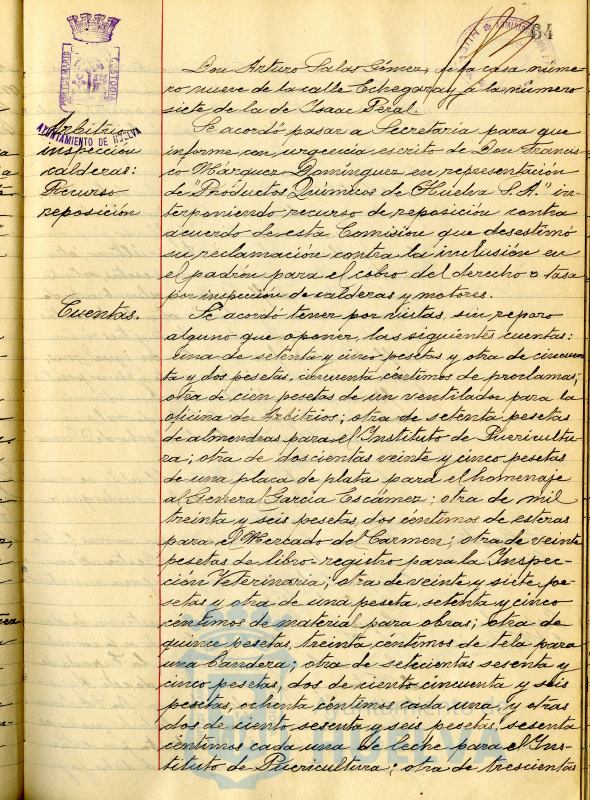 64
AYUNTAMIENTO DE HUELVA
Don Arturo Salas Gómez, de la casa núme-
ro nueve de la calle Echegaray, a la número
siete de la de Isaac Peral.
Arbitrio
inspección
calderas:
Recurso
reposición
Se acordó pasar a Secretaría para que
informe con urgencia escrito de Don Francis-
co Márquez Domínguez en representación
de "Productos Químicos de Huelva S.A." in-
terponiendo recurso de reposición contra
acuerdo de esta Comisión que desestimó
su reclamación contra la inclusión en
el padrón para el cobro del derecho o tasa
por inspección de calderas y motores.
Cuentas.
Se acordó tener por vistas, sin reparo
alguno que oponer, las siguientes cuentas:
una de setenta y cinco pesetas y otra de cincuen-
ta y dos pesetas, cincuenta céntimos de proclamas;
otra de cien pesetas de un ventilador para la
oficina de Arbitrios; otra de setenta pesetas
de almendras para el Instituto de Puericultu-
ra; otra de doscientas veinte y cinco pesetas
de una placa de plata para el homenaje
al General García Escámez; otra de mil
treinta y seis pesetas, dos céntimos de esteras
para el Mercado del Carmen; otra de veinte
pesetas de libro-registro para la Inspec-
ción Veterinaria; otra de veinte y siete pe-
setas y otra de una peseta, setenta y cinco
céntimos de material para obras; otra de
quince pesetas, treinta céntimos de tela para
una bandera; otra de setecientas sesenta y
cinco pesetas, dos de ciento cincuenta y seis
pesetas, ochenta céntimos cada una y otras
dos de ciento sesenta y seis pesetas, sesenta
céntimos cada una de leche para el Ins-
tituto de Puericultura; otra de trescientas
HUELVA